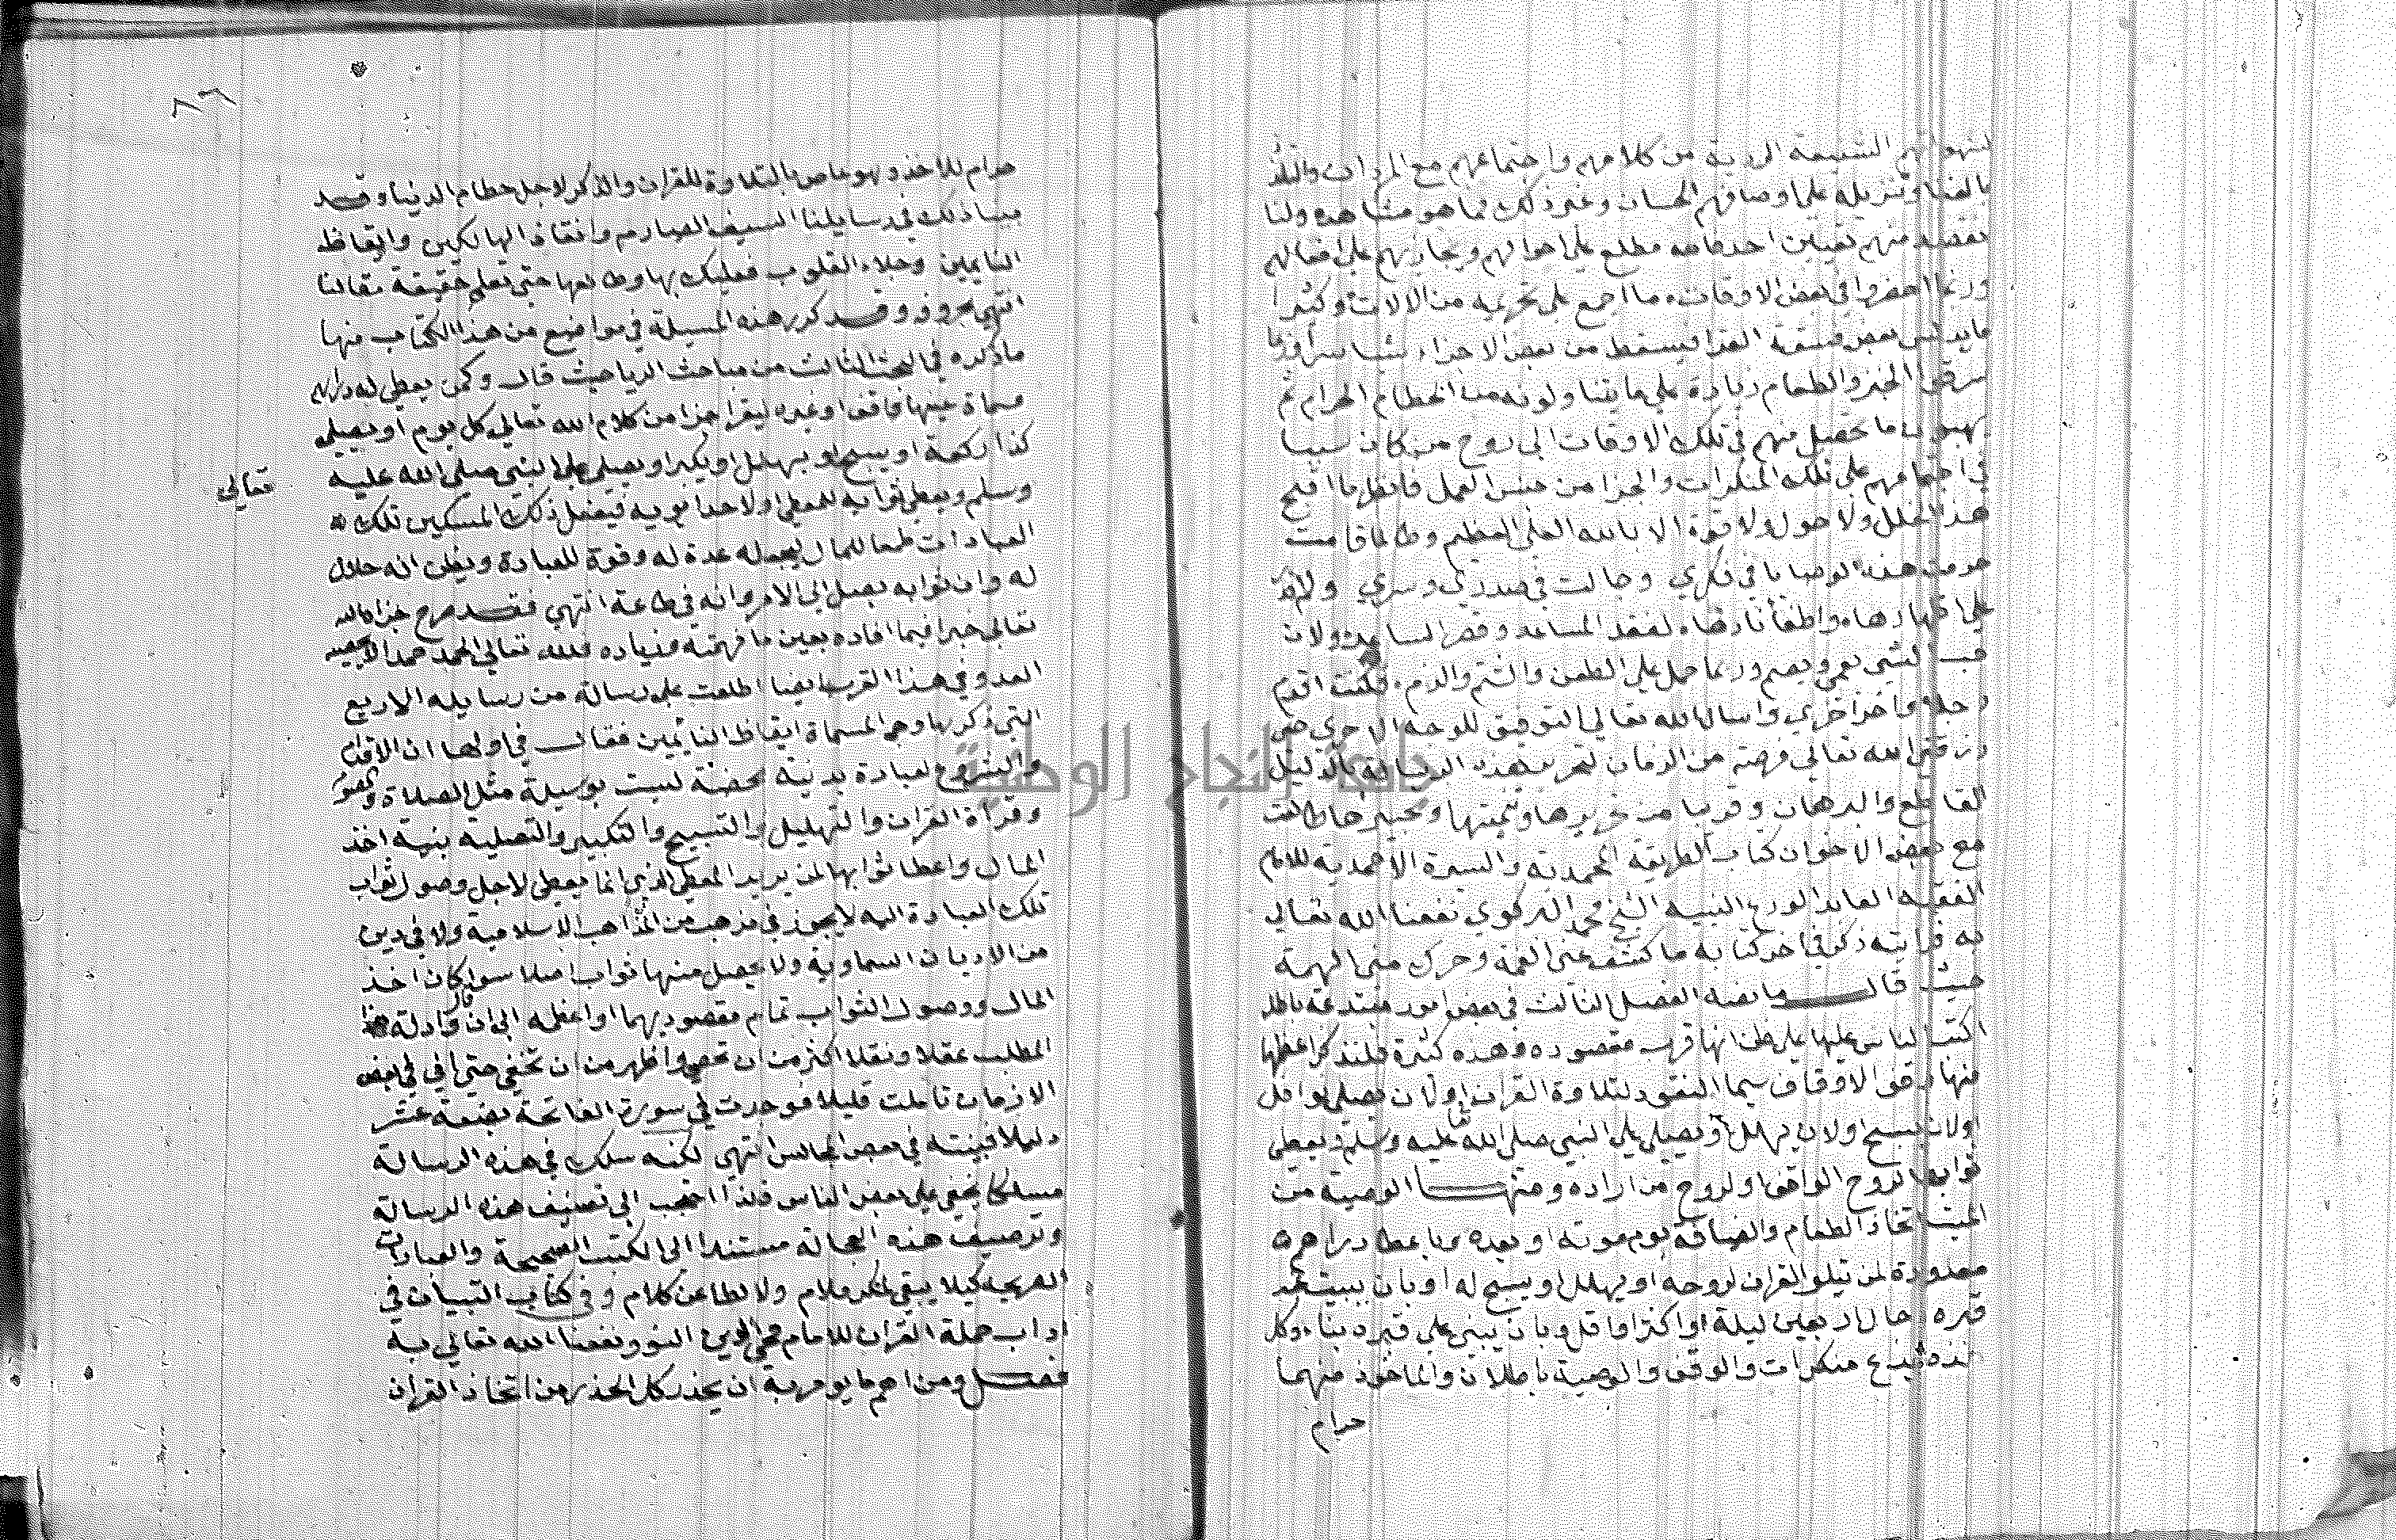 لشهواتهم الشنيعة الردية من كلامهم واجتماعهم مع المردان والتلذذ
بالغناء وتنزيله على اوصافهم الحسان وغير ذلك مما هو مشاهد ولنا
بقصد منهم تقبلين احد مامه مطلع على احوالهم ويجازيهم على افعالهم
وربما احضروا في بعض الاوقات ما اجمع على تحريمه من الالات وكثيرا
ما يدلس بعض فسقة القرا فيسقط من بعض الاجزاء شيا سرا وربما
سرقوا الخبز والطعام زيادة على ما يتناولونه من الحطام الحرام ثم
يهبون ما تحصل منهم في تلك الاوقات الى روح من كان سببا
في اجتماعهم على تلك المنكرات والجزا من جنس العمل فانظر ما اقبح
هذا الخلل ولا حول ولا قوة الا بالله العلي العظيم وطالما قامت
هذه الوصايا في فكري وجالت في صدري وسري ولم
على اظهارها واطفأ نارها لفقد المساعد وقصر الساعد ولان
حب الشي يعمي ويصم وربما حمل على الطعن والشتم والذم فكنت اقدم
رجلا واخر اخرى واسال الله تعالى التوفيق للوجه الاحرى حتى
رزقني الله تعالى فرصة من الزمان لتحرير هذه الرسالة بالدليل
القاطع والبرهان وقريبا من تحريرها وتتميتها وتحبيرها طالعت
مع بعض الاخوان كتاب الطريقة المحمدية والسيرة الاحمدية للامام
الفقيه العابد الورع النبيه الشيخ محمد البركوي نفعنا الله تعالى
به فرايته ذكر في اخر كتابه ما كشف عني الغمة وحرك مني الهمة
حيث قال ما نصه الفصل الثالث في بعض امور مبتدعة باطلة
اكب الناس عليها على ظن انها قرب مقصودة وهذه كثيرة فلنذكر اعظمها
منها وقف الاوقاف سيما النقود لتلاوة القران او لان يصلي نوافل
او لان يسبح او لان يهلل او يصلي على النبي صلى الله تعالى عليه وسلم ويعطي
ثوابها لروح الواقف او لروح من اراده ومنها الوصية من
الميت باتخاذ الطعام والضيافة يوم موته او بعده وباعطا دراهم
معدودة لمن يتلو القران لروحه او يهلل او يسبح له او بان يبيت عند
قبره رجال اربعين ليلة او اكثر او اقل وبان يبنى على قبره بناء وكل
هذه بدع منكرات والوقف والوصية باطلان والماخوذ منهما
حرام
جامعة النجاح الوطنية
٨٦
حرام للاخذ وهو عاص بالتلاوة للقران والذكر لاجل حطام الدنيا وقد
بينا ذلك في رسايلنا السيف الصارم وانقاذ الهالكين وايقاظ
النايمين وجلاء القلوب فعليك بها وطالعها حتى تعلم حقيقة مقالنا
انتهى بحروفه وقد كرر هذه المسيلة في مواضع من هذا الكتاب منها
ما ذكره في المبحث الثالث من مباحث الريا حيث قال وكمن يعطى له دراهم
مسماة عينها واقف او غيره ليقرا جزا من كلام الله تعالى كل يوم او يصلي
كذا ركعة او يسبح او يهلل او يكبر او يصلي على النبي صلى الله عليه
تعالى
وسلم ويعطي ثوابه للمعطي او لاحد ابويه فيفعل ذلك المسكين تلك
العبادات طمعا للمال ليجعله عدة له وقوة للعبادة ويظن انه حلال
له وان ثوابه يصل الى الامر وانه في طاعة انتهى فقد صرح جزاه الله
تعالى خيرا فيما افاده بعين ما فهمته وزياده فلله تعالى الحمد حمدا لا يحصيه
العد وفي هذا القرب ايضا اطلعت على رسالة من رسايله الاربع
التي ذكرها وهي المسماة ايقاظ النائمين فقال في اولها ان الاقدام
والشروع لعبادة بدنية محضة ليست بوسيلة مثل الصلاة والصوم
وقراة القران والتهليل والتسبيح والتكبير والتصليه بنية اخذ
المال واعطا ثوابها لمن يريد المعطي الذي انما يعطي لاجل وصول ثواب
تلك العبادة اليه لا يجوز في مذهب من المذاهب الاسلامية ولا في دين
من الاديان السماوية ولا يحصل منها ثواب اصلا سوا كان اخذ
المال ووصول الثواب تمام مقصوديهما او اعظمه الى ان قال وادلة هذا
المطلب عقلا ونقلا اكثر من ان تحصى واظهر من ان تخفى حتى اني في بعض
الازمان تاملت قليلا فوجدت في سورة الفاتحة بضعة عشر
دليلا فبينته في بعض المجالس انتهى لكنه سلك في هذه الرسالة
مسلكا يخفى على بعض الناس فلذا احتجب الى تصنيف هذه الرسالة
وترصيف هذه العجالة مستندا الى الكتب الصحيحة والعبارات
الصريحة كيلا يبقى لمنكر ملام ولا لطاعن كلام وفي كتاب التبيان في
اداب حملة القران للامام محي الدين النووي نفعنا الله تعالى به
فصل ومن اهم ما يومر به ان يحذر كل الحذر من اتخاذ القران